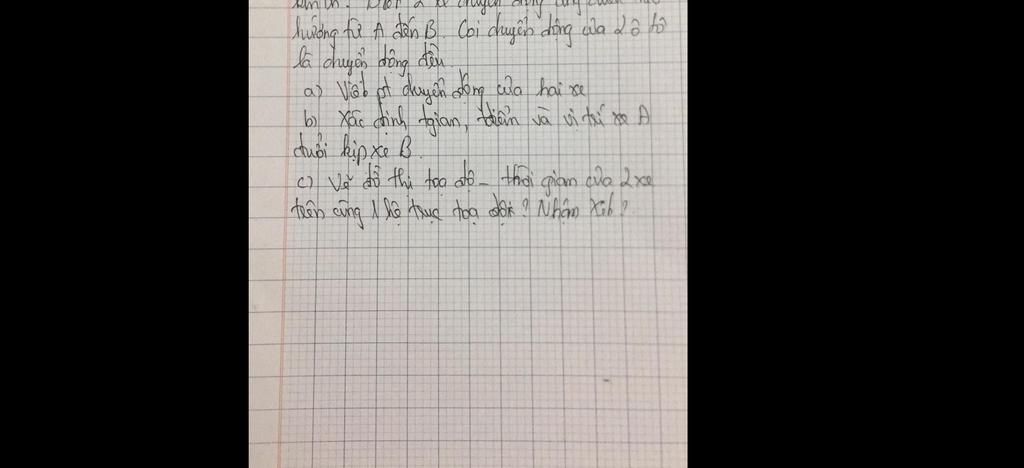 2 xe chuyển động cùng
hướng từ A đến B. Coi chuyển động của 2 ô tô
là chuyển động đều.
a) Viết pt chuyển động của hai xe
b) Xác định tgian, điểm và vị trí xe A
đuổi kịp xe B.
c) Vẽ đồ thị toạ độ - thời gian của 2 xe
trên cùng 1 hệ trục toạ độ? Nhận xét?